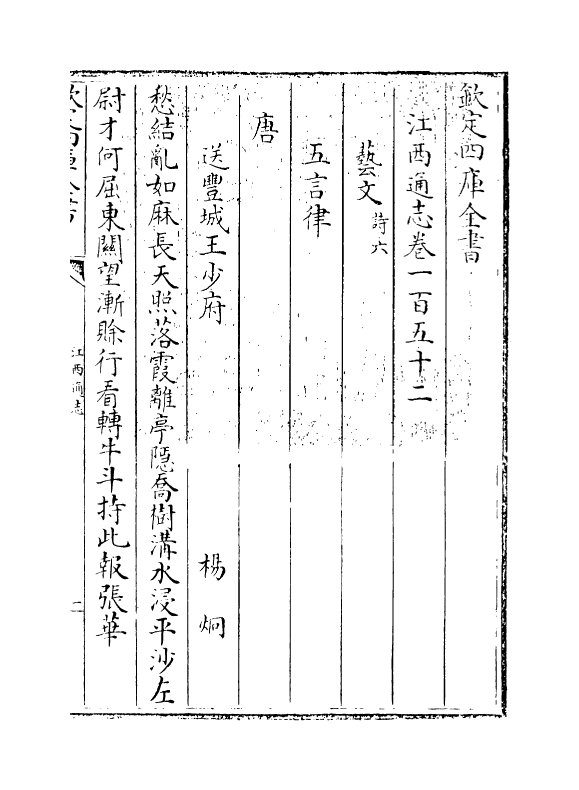 欽定四庫全書
江西通志卷一百五十二
藝文 詩六
五言律
唐
送豐城王少府 楊烱
愁結亂如麻長天照落霞離亭隱喬樹溝水浸平沙左
尉才何屈東關望漸賒行看轉牛斗持此報張華
江西通志